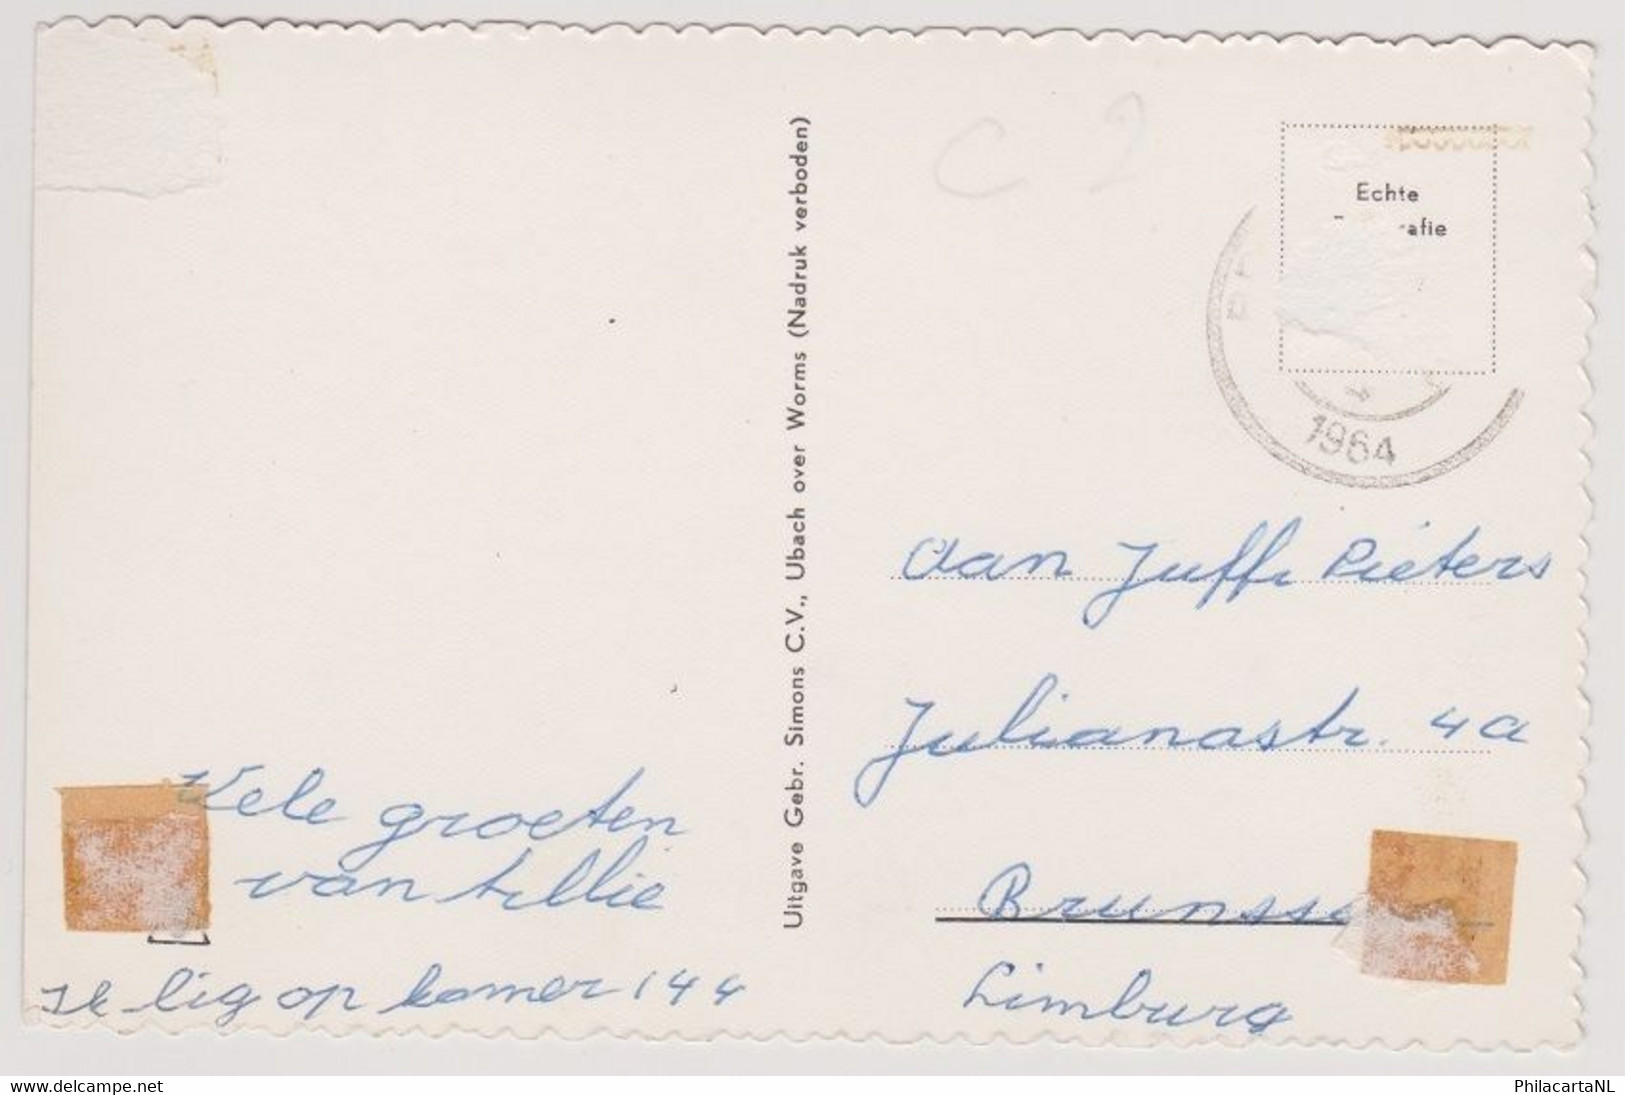 C 2
Echte
afie
1964
Uitgave Gebr. Simons C.V., Ubach over Worms (Nadruk verboden)
Aan Juffr Pieters
Julianastr. 4a
Limburg
Vele groeten
van Tillie
Ik lig op kamer 144
www.delcampe.net
PhilacartaNL